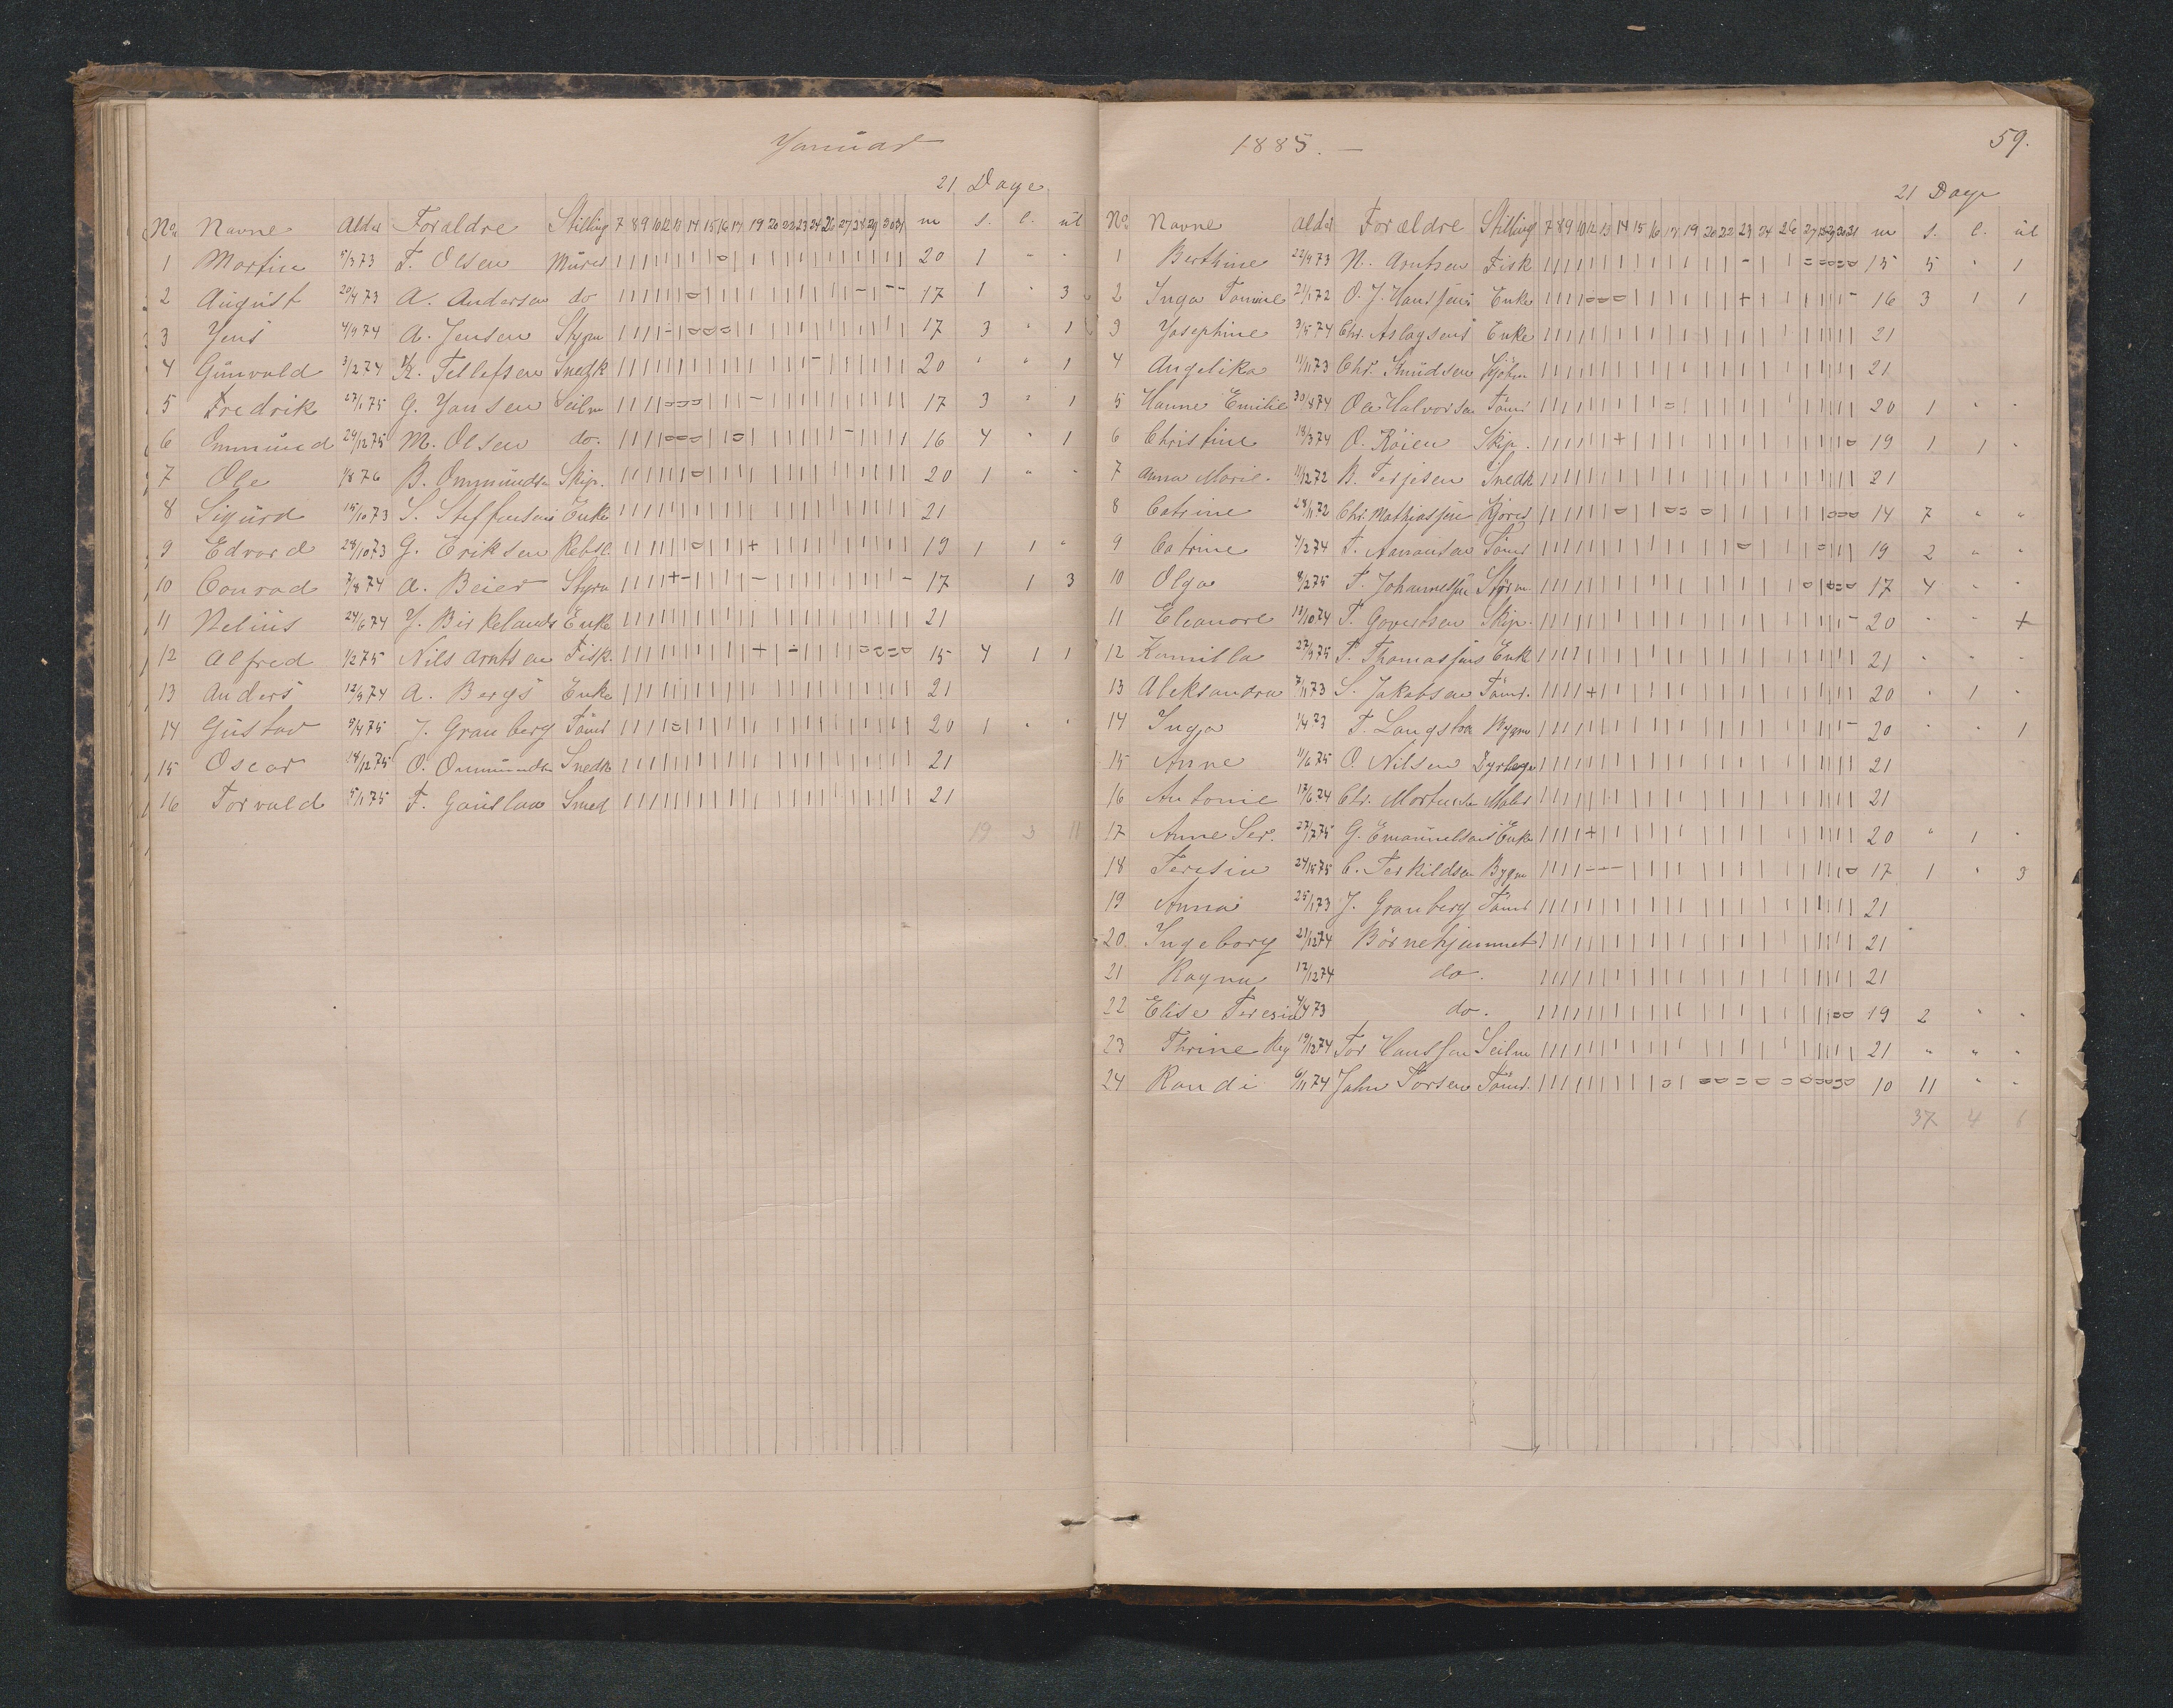 Januar
21 Dage
No. Navne Alder Foraldre Stilling 7 8 9 10 12 13 14 15 16 17 19 20 22 23 24 26 27 28 29 30 31 m s. l. ul
1 Martin 5/3 73 T. Olsen Murer 20 1 " "
2 August 20/4 73 A. Andersen do 17 1 " 3
3 Jens 4/9 74 A. Jensen Styrm 17 3 " 1
4 Gunvald 3/2 74 K. Tellefsen Snedk 20 " " 1
5 Fredrik 27/1 75 G. Jansen Seilm 17 3 " 1
6 Ommund 29/12 75 M. Olsen do. 16 4 " 1
7 Ole 1/8 76 B. Ommundsn Skip. 20 1 " "
8 Sigurd 15/10 73 S. Steffensens Enke 21
9 Edvard 28/10 73 G. Eriksen Rebsl. 19 1 1 "
10 Conrad 7/8 74 A. Beier Styrm 17 1 3
11 Nelius 24/6 74 J. Birkelands Enke 21
12 Alfred 1/2 75 Nils Arntsen Fisk. 15 4 1 1
13 Anders 12/9 74 A. Bergs Enke 21
14 Gustav 9/4 75 J. Granberg Tømr 20 1 " "
15 Oscar 14/12 75 O. Ommundsn Snedk 21
16 Torvald 5/1 75 T. Gauslaa Smed 21
19 3 11
1885. —
59.
21 Dage
No Navne Alder Forældre Stilling 7 8 9 10 12 13 14 15 16 17 19 20 22 23 24 26 27 28 29 30 31 m s. l. ul
1 Berthine 22/9 73 N. Arntsen Fisk 15 5 " 1
2 Inga Tomine 21/1 72 O. J. Hanssens Enke 16 3 1 1
3 Josephine 3/5 74 Chr. Aslagsens Enke 21
4 Angelika 11/11 73 Chr. Knudsen Sjøm 21
5 Hanne Emilie 30/8 74 Ole Halvorsen Tømr 20 1 " "
6 Christine 19/3 74 O. Røien Skip. 19 1 1 "
7 Anna Marie. 11/12 72 B. Terjesen Snedk 21
8 Catrine 28/11 72 Chr. Mathiassen Kjøres 14 7 " "
9 Catrine 4/2 74 T. Aanonsen Tømr 19 2 " "
10 Olga 8/2 75 T. Johannessen Styrm. 17 4 " "
11 Eleanore 13/10 74 T. Govertsen Skip. 20 " " +
12 Kamilla 27/9 75 T. Thomassens Enke 21 " " "
13 Aleksandra 7/11 73 S. Jakobsen Tømr. 20 " 1 "
14 Inga 1/4 73 T. Langstha Bygm 20 " " 1
15 Anne 11/6 75 O. Nilsen Dyrlæge 21
16 Antonie 17/6 74 Chr. Mortensen Maler 21
17 Anne Ser. 27/7 75 G. Emanuelsens Enke 20 " 1 "
18 Teresia C. Terkildsen Bygm 17 1 " 3
19 Anna 25/1 73 J. Granberg Tømr 21
20. Ingeborg 21/12 74 Børnehjemmet 21
21 Ragna 12/12 74 do. 21
22 Elise Teresia 4/4 73 do. 19 2 " "
23 Thrine Reg 19/12 74 Tor Hanssen Seilm 21 " " "
24 Randi 6/11 74 Jahn Torsen Tømr. 10 11 " "
37 4 6